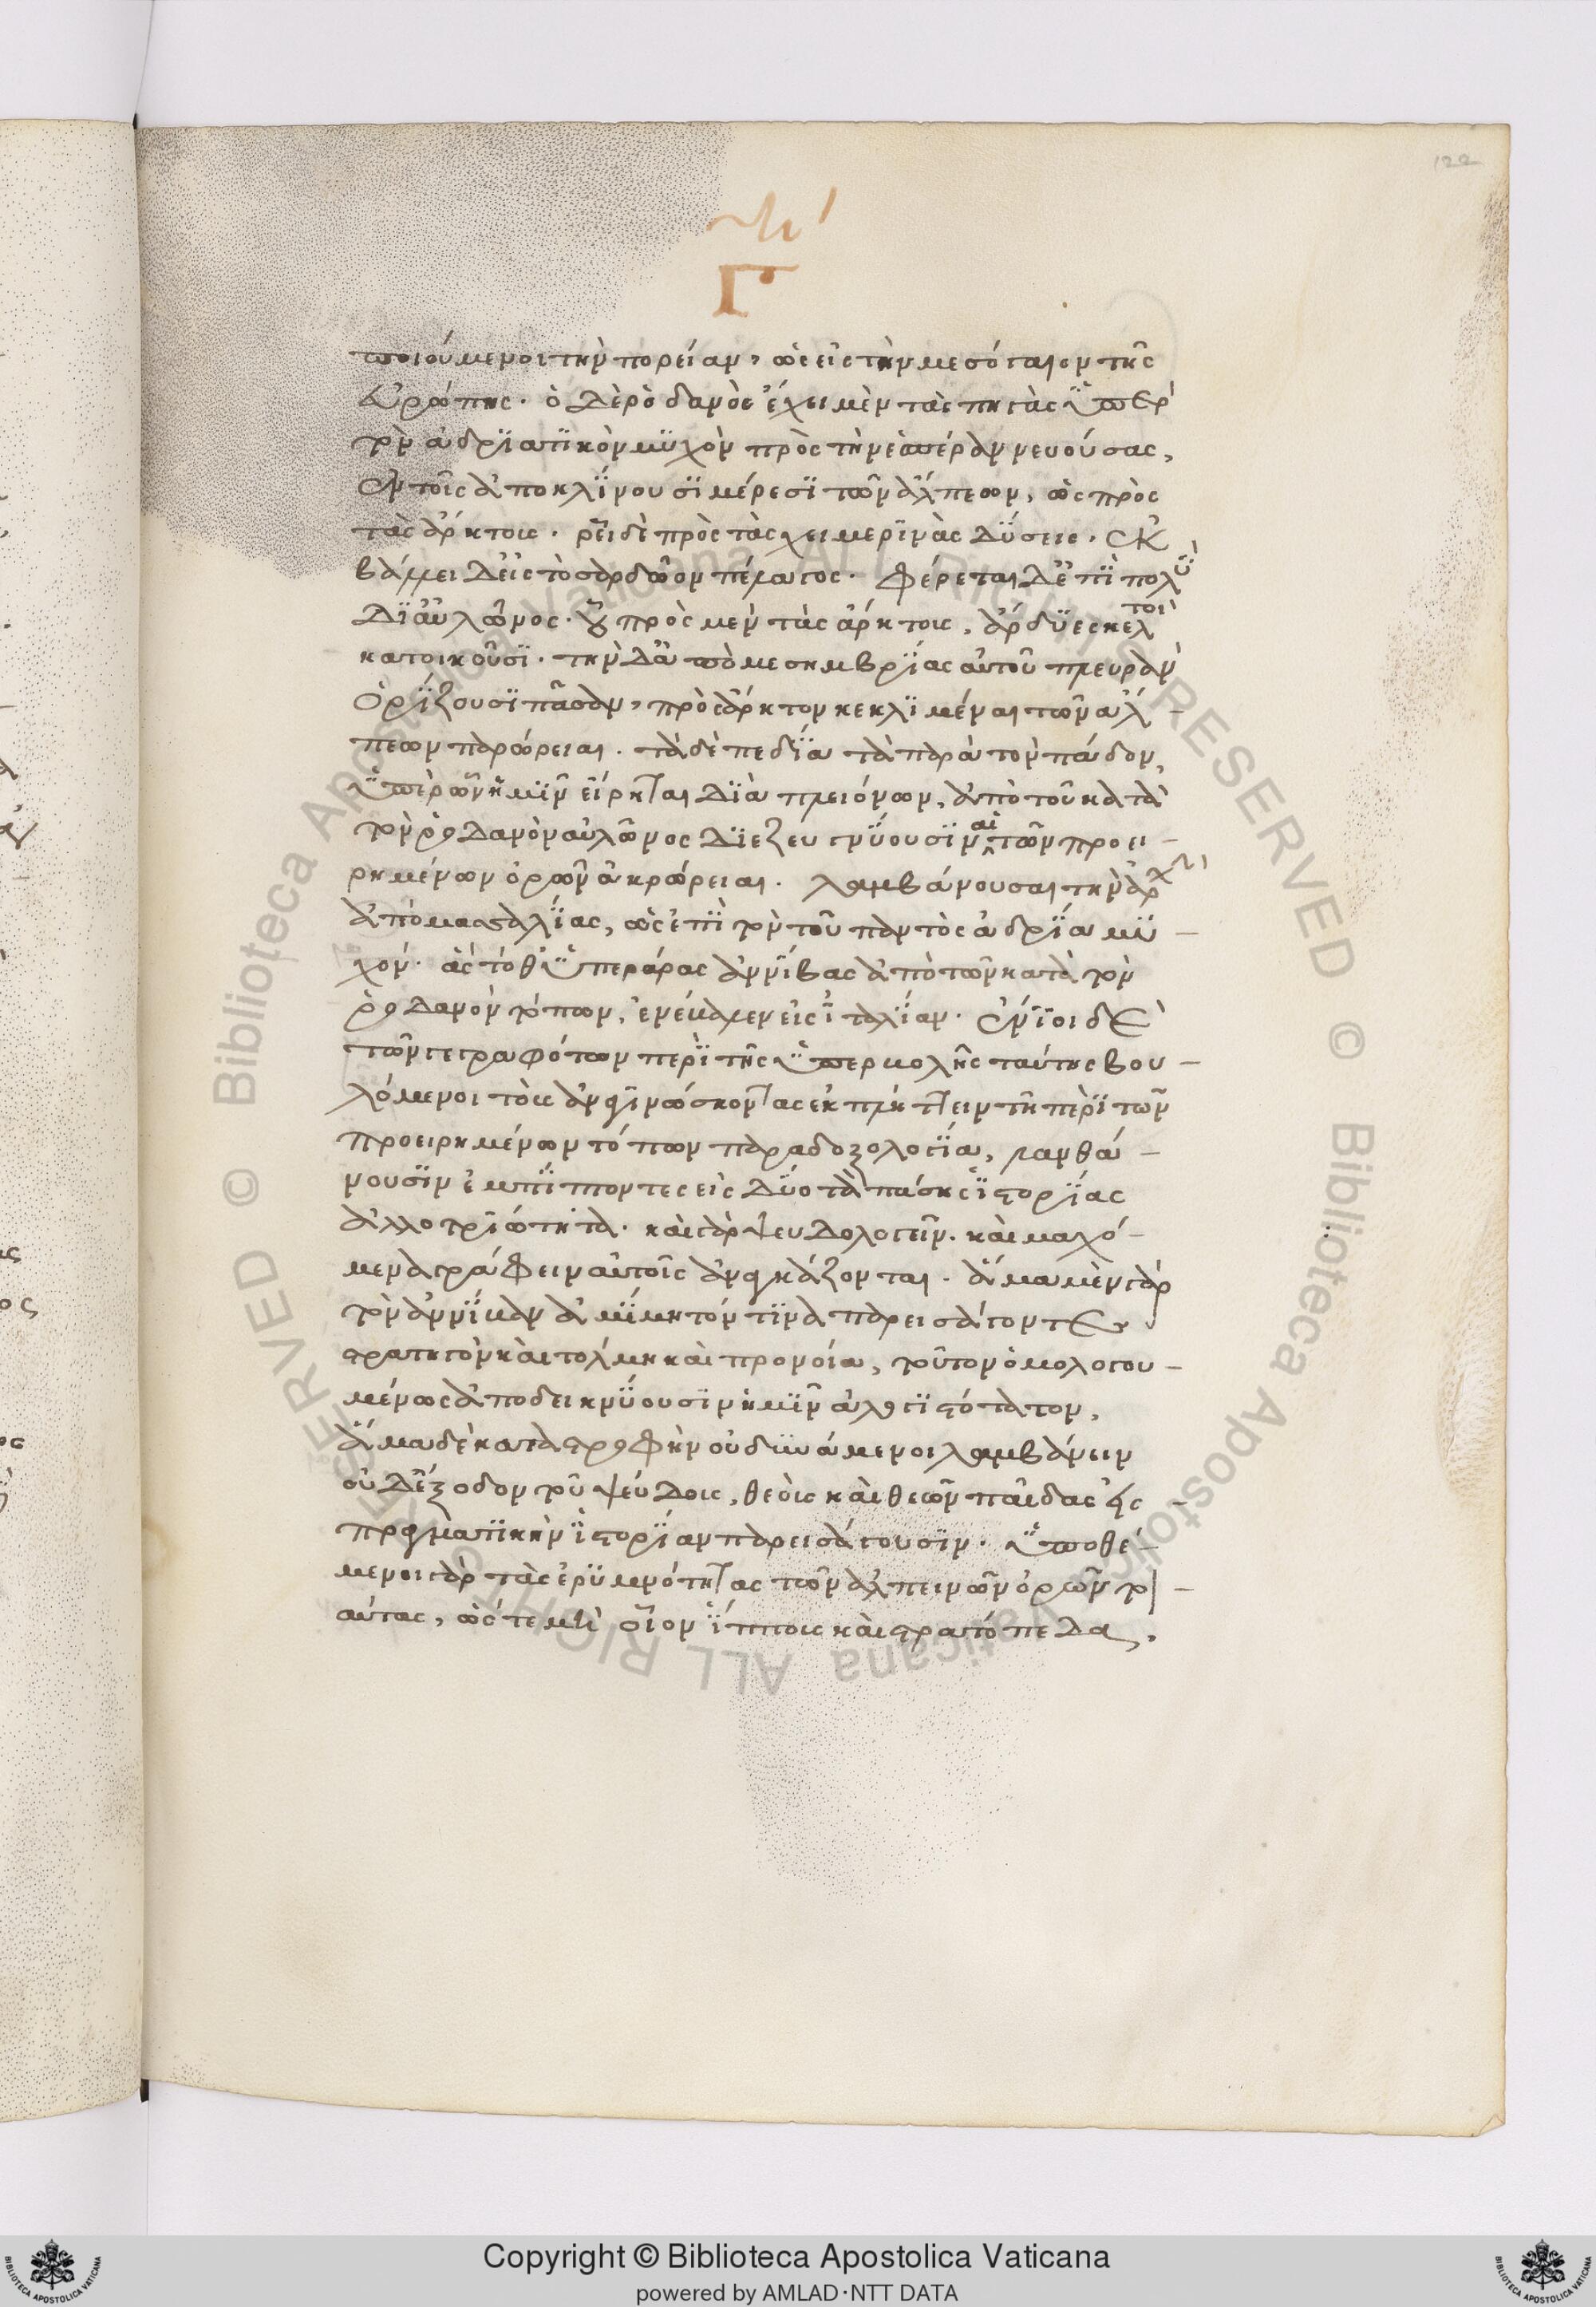 122
Γ
ποιούμενοι τὴν πορείαν, ὡς εἰς τὴν μεσόγαιον τῆς
εὐρώπης. ὁ δὲ ῥοδανὸς ἔχει μὲν τὰς πηγὰς ὑπὲρ
τὸν ἀδριατικὸν μυχὸν πρὸς τὴν ἑσπέραν νευούσας,
ἐν τοῖς ἀποκλίνουσι μέρεσι τῶν ἄλπεων, ὡς πρὸς
τὰς ἄρκτους. ῥεῖ δὲ πρὸς τὰς χειμερινὰς δύσεις. ἐκ
βάλλει δ' εἰς τὸ σαρδῷον πέλαγος. φέρεται δ' ἐπὶ πολὺ
δι' αὐλῶνος. οὗ πρὸς μὲν τὰς ἄρκτους, ἄρδυες κελτοὶ
κατοικοῦσι. τὴν δ' ἀπὸ μεσημβρίας αὐτοῦ πλευρὰν
ὁρίζουσι πᾶσαν, πρὸς ἄρκτον κεκλιμέναι τῶν ἄλ-
πεων παρώρειαι. τὰ δὲ πεδία τὰ παρὰ τὸν πάδον,
ὑπὲρ ὧν ἡμῖν εἴρηται διὰ πλειόνων, ἀπὸ τοῦ κατὰ
τὸν ῥοδανὸν αὐλῶνος διεζευγνύουσιν αἱ τῶν προει-
ρημένων ὀρῶν ἀκρώρειαι. λαμβάνουσαι τὴν ἀρχὴν
ἀπὸ μασσαλίας, ὡς ἐπὶ τὸν τοῦ παντὸς ἀδρία μυ-
χόν. ἃς τόθ' ὑπεράρας ἀννίβας ἀπὸ τῶν κατὰ τὸν
ῥοδανὸν τόπων, ἐνέβαλεν εἰς ἰταλίαν. ἔνιοι δὲ
τῶν γεγραφότων περὶ τῆς ὑπερβολῆς ταύτης βου-
λόμενοι τοὺς ἀναγινώσκοντας ἐκπλήττειν τῇ περὶ τῶν
προειρημένων τόπων παραδοξολογίᾳ, λανθά-
νουσιν ἐμπίπτοντες εἰς δύο τὰ πάσης ἱστορίας
ἀλλοτριώτητα. καὶ γὰρ ψευδολογεῖν. καὶ μαχό-
μενα γράφειν αὐτοῖς ἀναγκάζονται. ἅμα μὲν γὰρ
τὸν ἀννίβαν ἀμίμητόν τινα παρεισάγοντες
στρατηγὸν καὶ τόλμῃ καὶ προνοίᾳ, τοῦτον ὁμολογου-
μένως ἀποδεικνύουσιν ἡμῖν ἀλογιστότατον,
ἅμα δὲ καταστροφὴν οὐ δυνάμενοι λαμβάνειν
οὐδ' ἔξοδον τοῦ ψεύδους, θεοὺς καὶ θεῶν παῖδας εἰς
πραγματικὴν ἱστορίαν παρεισάγουσιν. ὑποθέ-
μενοι γὰρ τὰς ἐρυμνότητας τῶν ἀλπεινῶν ὀρῶν τοι-
αύτας, ὥστε μὴ οἷον ἵππους καὶ στρατόπεδα,
Copyright © Biblioteca Apostolica Vaticana
powered by AMLAD·NTT DATA